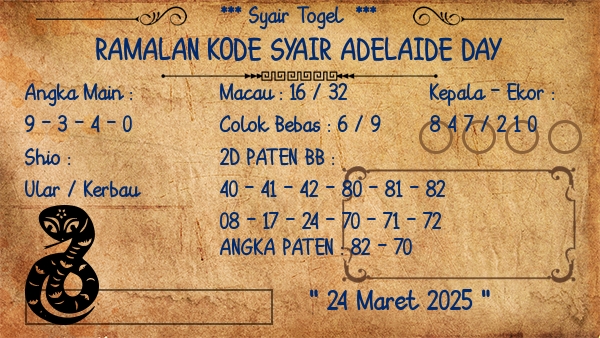 *** Syair Togel ***
RAMALAN KODE SYAIR ADELAIDE DAY
Angka Main :
9 - 3 - 4 - 0
Shio :
Ular / Kerbau
Macau : 16 / 32
Colok Bebas : 6 / 9
2D PATEN BB :
40 - 41 - 42 - 80 - 81 - 82
08 - 17 - 24 - 70 - 71 - 72
ANGKA PATEN : 82 - 70
Kepala - Ekor :
8 4 7 / 2 1 0
" 24 Maret 2025 "